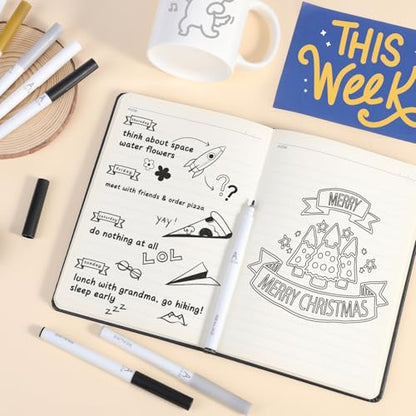 THIS
Week
Thursday
think about space
water flowers
Friday
meet with friends & order pizza
YAY!
Saturday
do nothing at all
LOL
Sunday
lunch with grandma, go hiking!
sleep early
zzz
MERRY
MERRY CHRISTMAS